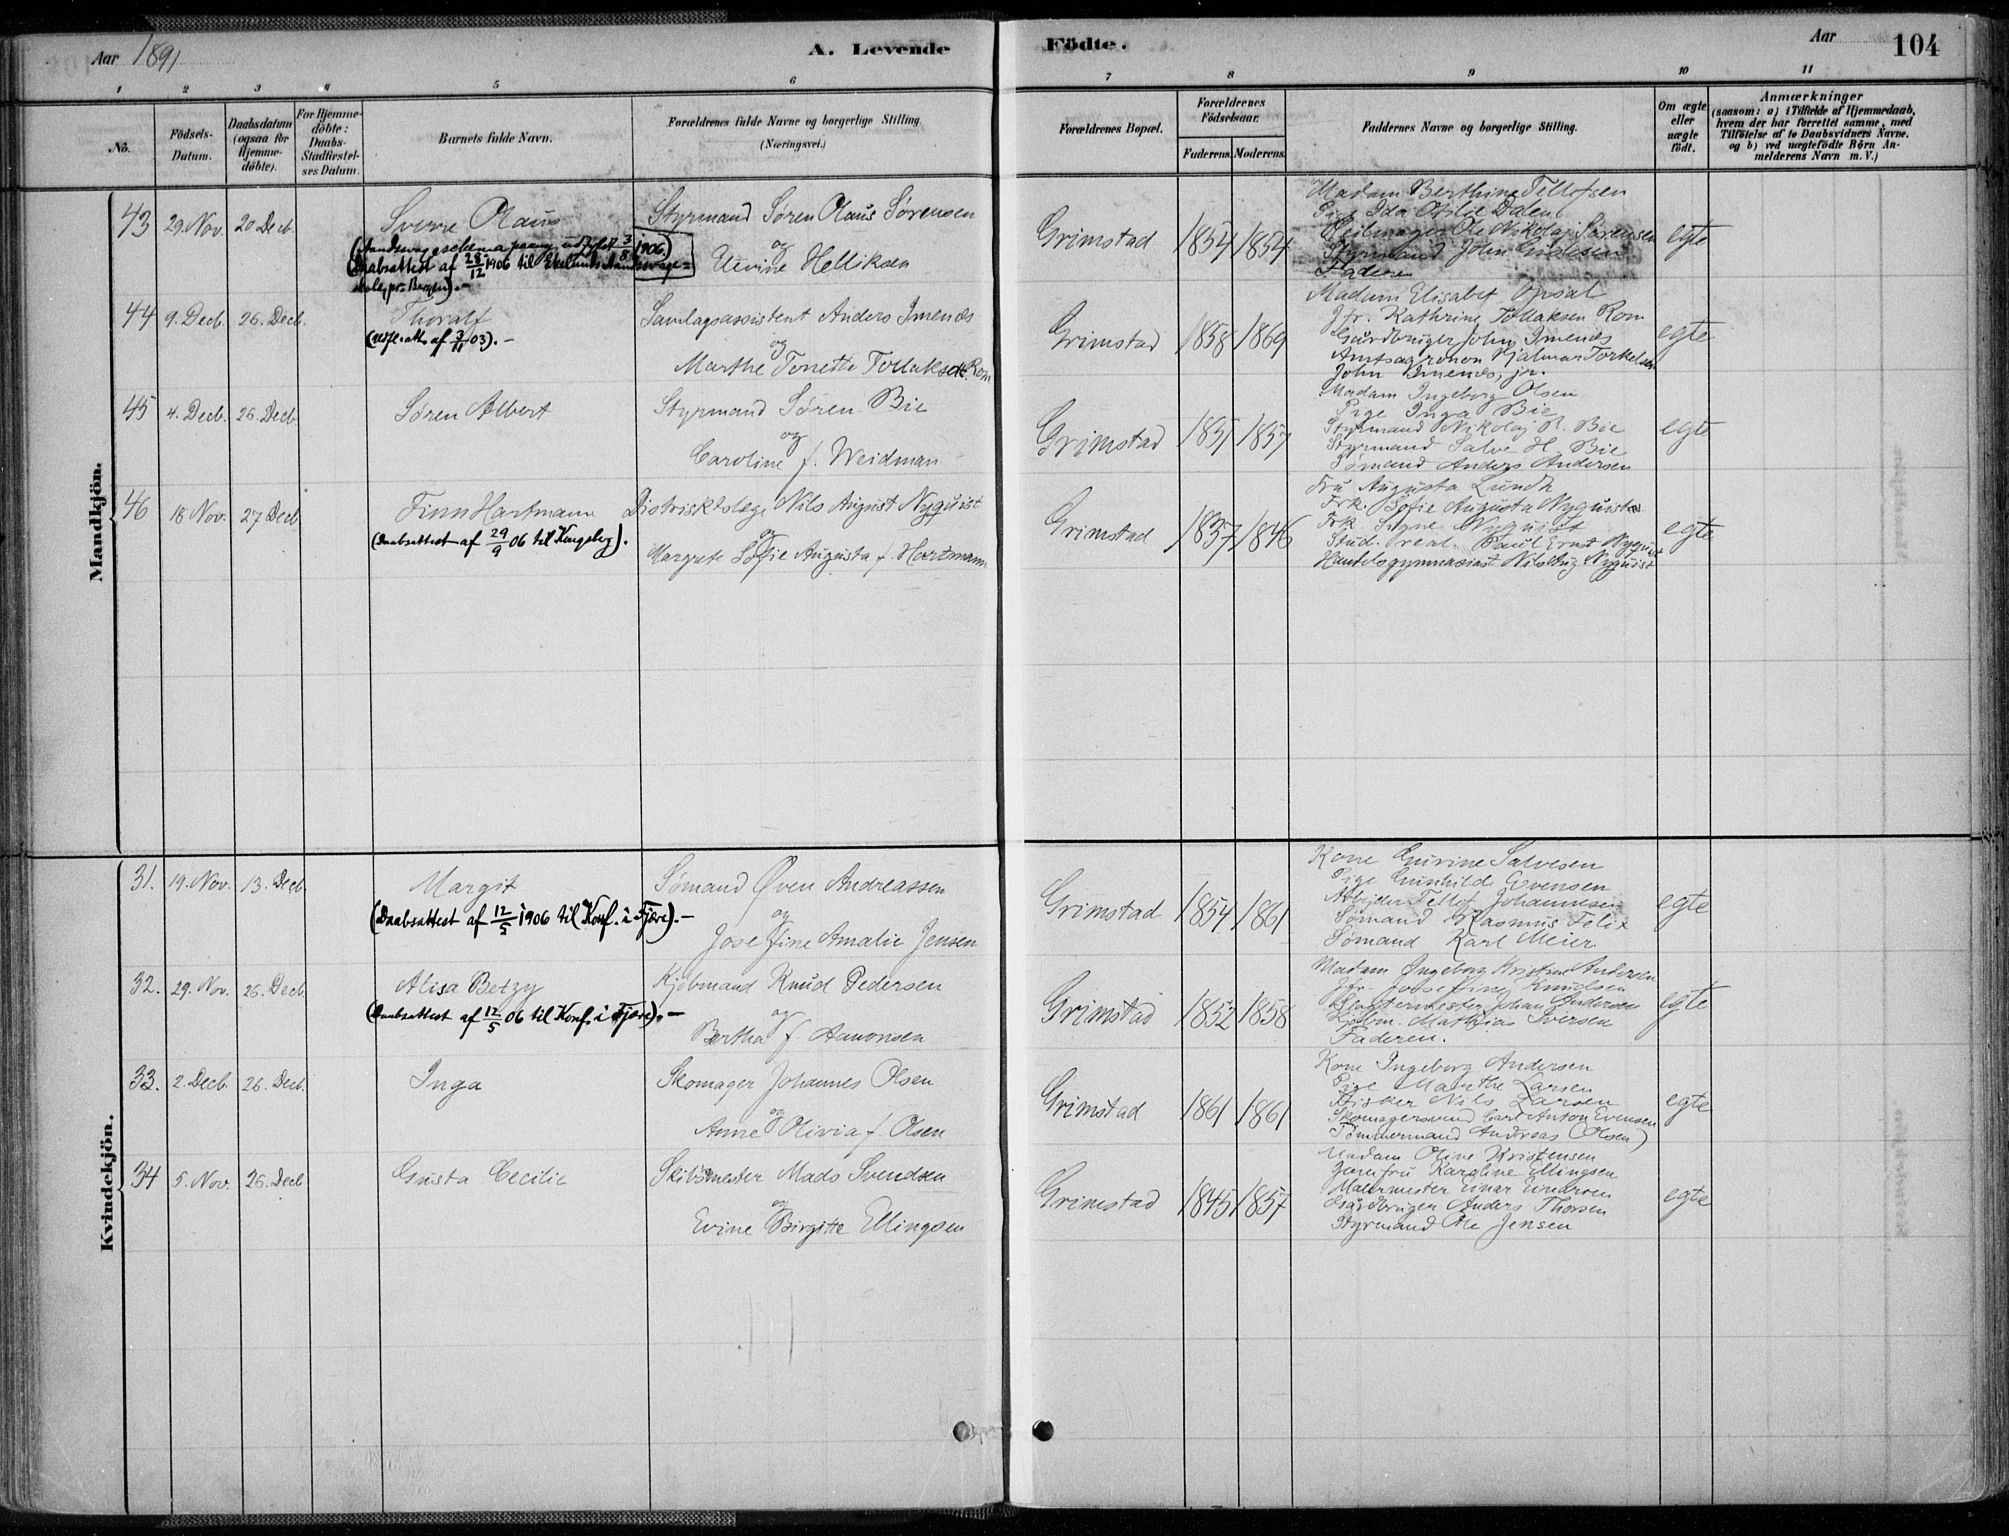 Aar 1891
A. Levende
Födte.
Aar
104
1 2 3 4 5 6 7 8 9 10 11
No.
Födsels-
Datum.
Daabsdatum
(ogsaa for
Hjemme-
döbte).
For Hjemme-
döbte:
Daabs-
Stadfæstel-
ses Datum.
Barnets fulde Navn.
Forældrenes fulde Navne og borgerlige Stilling.
(Næringsvei.)
Forældrenes Bopæl.
Forældrenes
Födselsaar.
Faderens. Moderens.
Faddernes Navne og borgerlige Stilling.
Om ægte
eller
uægte
födt.
Anmærkninger
(saasom: a) i Tilfælde af Hjemmedaab,
hvem der har forrettet samme, med
Tilföielse af to Daabsvidners Navne.
og b) ved uægtefödte Börn An-
melderens Navn m. V.)
Mandkjön.
43 29. Nov. 20 Decb.
Sverre Olaus
(Daabsattest af 28/12 1906 til
pr. Bergen).-
Styrmand Søren Olaus Sørensen
og
Hellikdea
Grimstad 1854 1854
Madam Berthine Tellofsen
Pige Ida Otilie Dalen
Seilmager Ole Nikolaj Sørensen
Styrmand John
Faderen
egte
44 9. Decb. 26. Decb.
Thoralf
(Udfl. att. af 3/11 03).-
Samlagsassistent Anders Imenes
og
Marthe Tonette Tollaksdtr. Rom
Grimstad 1858 1869
Madam Elisabet Opsal
Jfr. Kathrine Tollaksen Rom
Gårdbruger John Imenes
Amtsagronom Hjalmar Torkelsen
John Imenes, jr.
egte
45 4. Decb. 26. Decb.
Søren Albert
Styrmand Søren Bie
og
Caroline f. Weidman
Grimstad 1851 1857
Madam Ingeborg Olsen
Pige Inga Bie
Styrmand Nikolaj N. Bie
Styrmand Salve H. Bie
Sømand Anders Andersen
egte
46 18 Nov. 27 Decb
Finn Hartmann
(Daabsattest af 29/9 06 til Kongsberg).
Distriktslæge Nils August Nyquist
og
Margrete Sofie Augusta f. Hartmann
Grimstad 1837 1846
Fru Augusta Lundh
Frk. Sofie Augusta Nyquist
Frk. Signe Nyquist
Stud. real. Paul Ernst Nyquist
Handelsgymnasiast Nils Aug. Nyquist
egte
Kvindekjön.
31. 19. Nov. 13. Decb
Margit
(Daabsattest af 12/5 1906 til Konf. i Fjære).-
Sømand Øven Andreassen
og
Josefine Amalie Jensen
Grimstad 1854 1861
Kone Gurine Salvesen
Pige Gunhilde Evensen
Arbeider Tellof Johannesen
Sømand Rasmus Felix
Sømand Karl Meier
egte
32. 29. Nov. 26. Decb
Alisa Betzy
(Daabsattest af 12/5 06 til Konf. i Fjære).-
Kjøbmand Knud Pedersen
og
Bertha f. Aanonsen
Grimstad 1852 1858
Madam Ingeborg Kristine Andersen
Jfr. Josefine Knudsen
Johan Andersen
Kjøbm. Mathias Iversen
Faderen.
egte
33. 2. Decb. 26. Decb.
Inga
Skomager Johannes Olsen
og
Anne Olivia f. Olsen
Grimstad 1861 1861
Kone Ingeborg Andersen
Pige Marthe Larsen
Fisker Nils Larsen
Skomagersvend Carl Anton Evensen
Tømmermand Andreas (Olsen)
egte
34 5. Nov. 26. Decb
Gusta Cecilie
Skibsmester Mads Svendsen
og
Evine Birgitte Ellingsen
Grimstad 1845 1857
Madam Oline Kristensen
Jomfru Karoline Ellingsen
Malermester Einar Einarsen
Gårdbruger Anders Thorsen
Styrmand Ole Jensen
egte